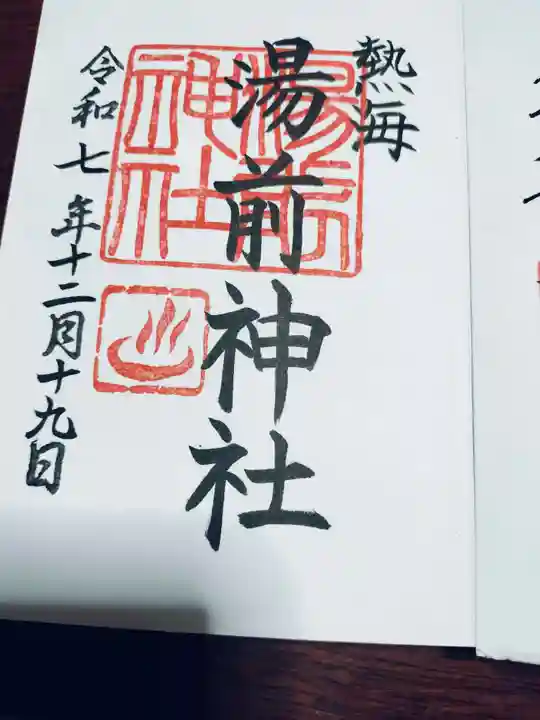 熱海
湯前神社
令和七年十二月十九日
湯前
神社